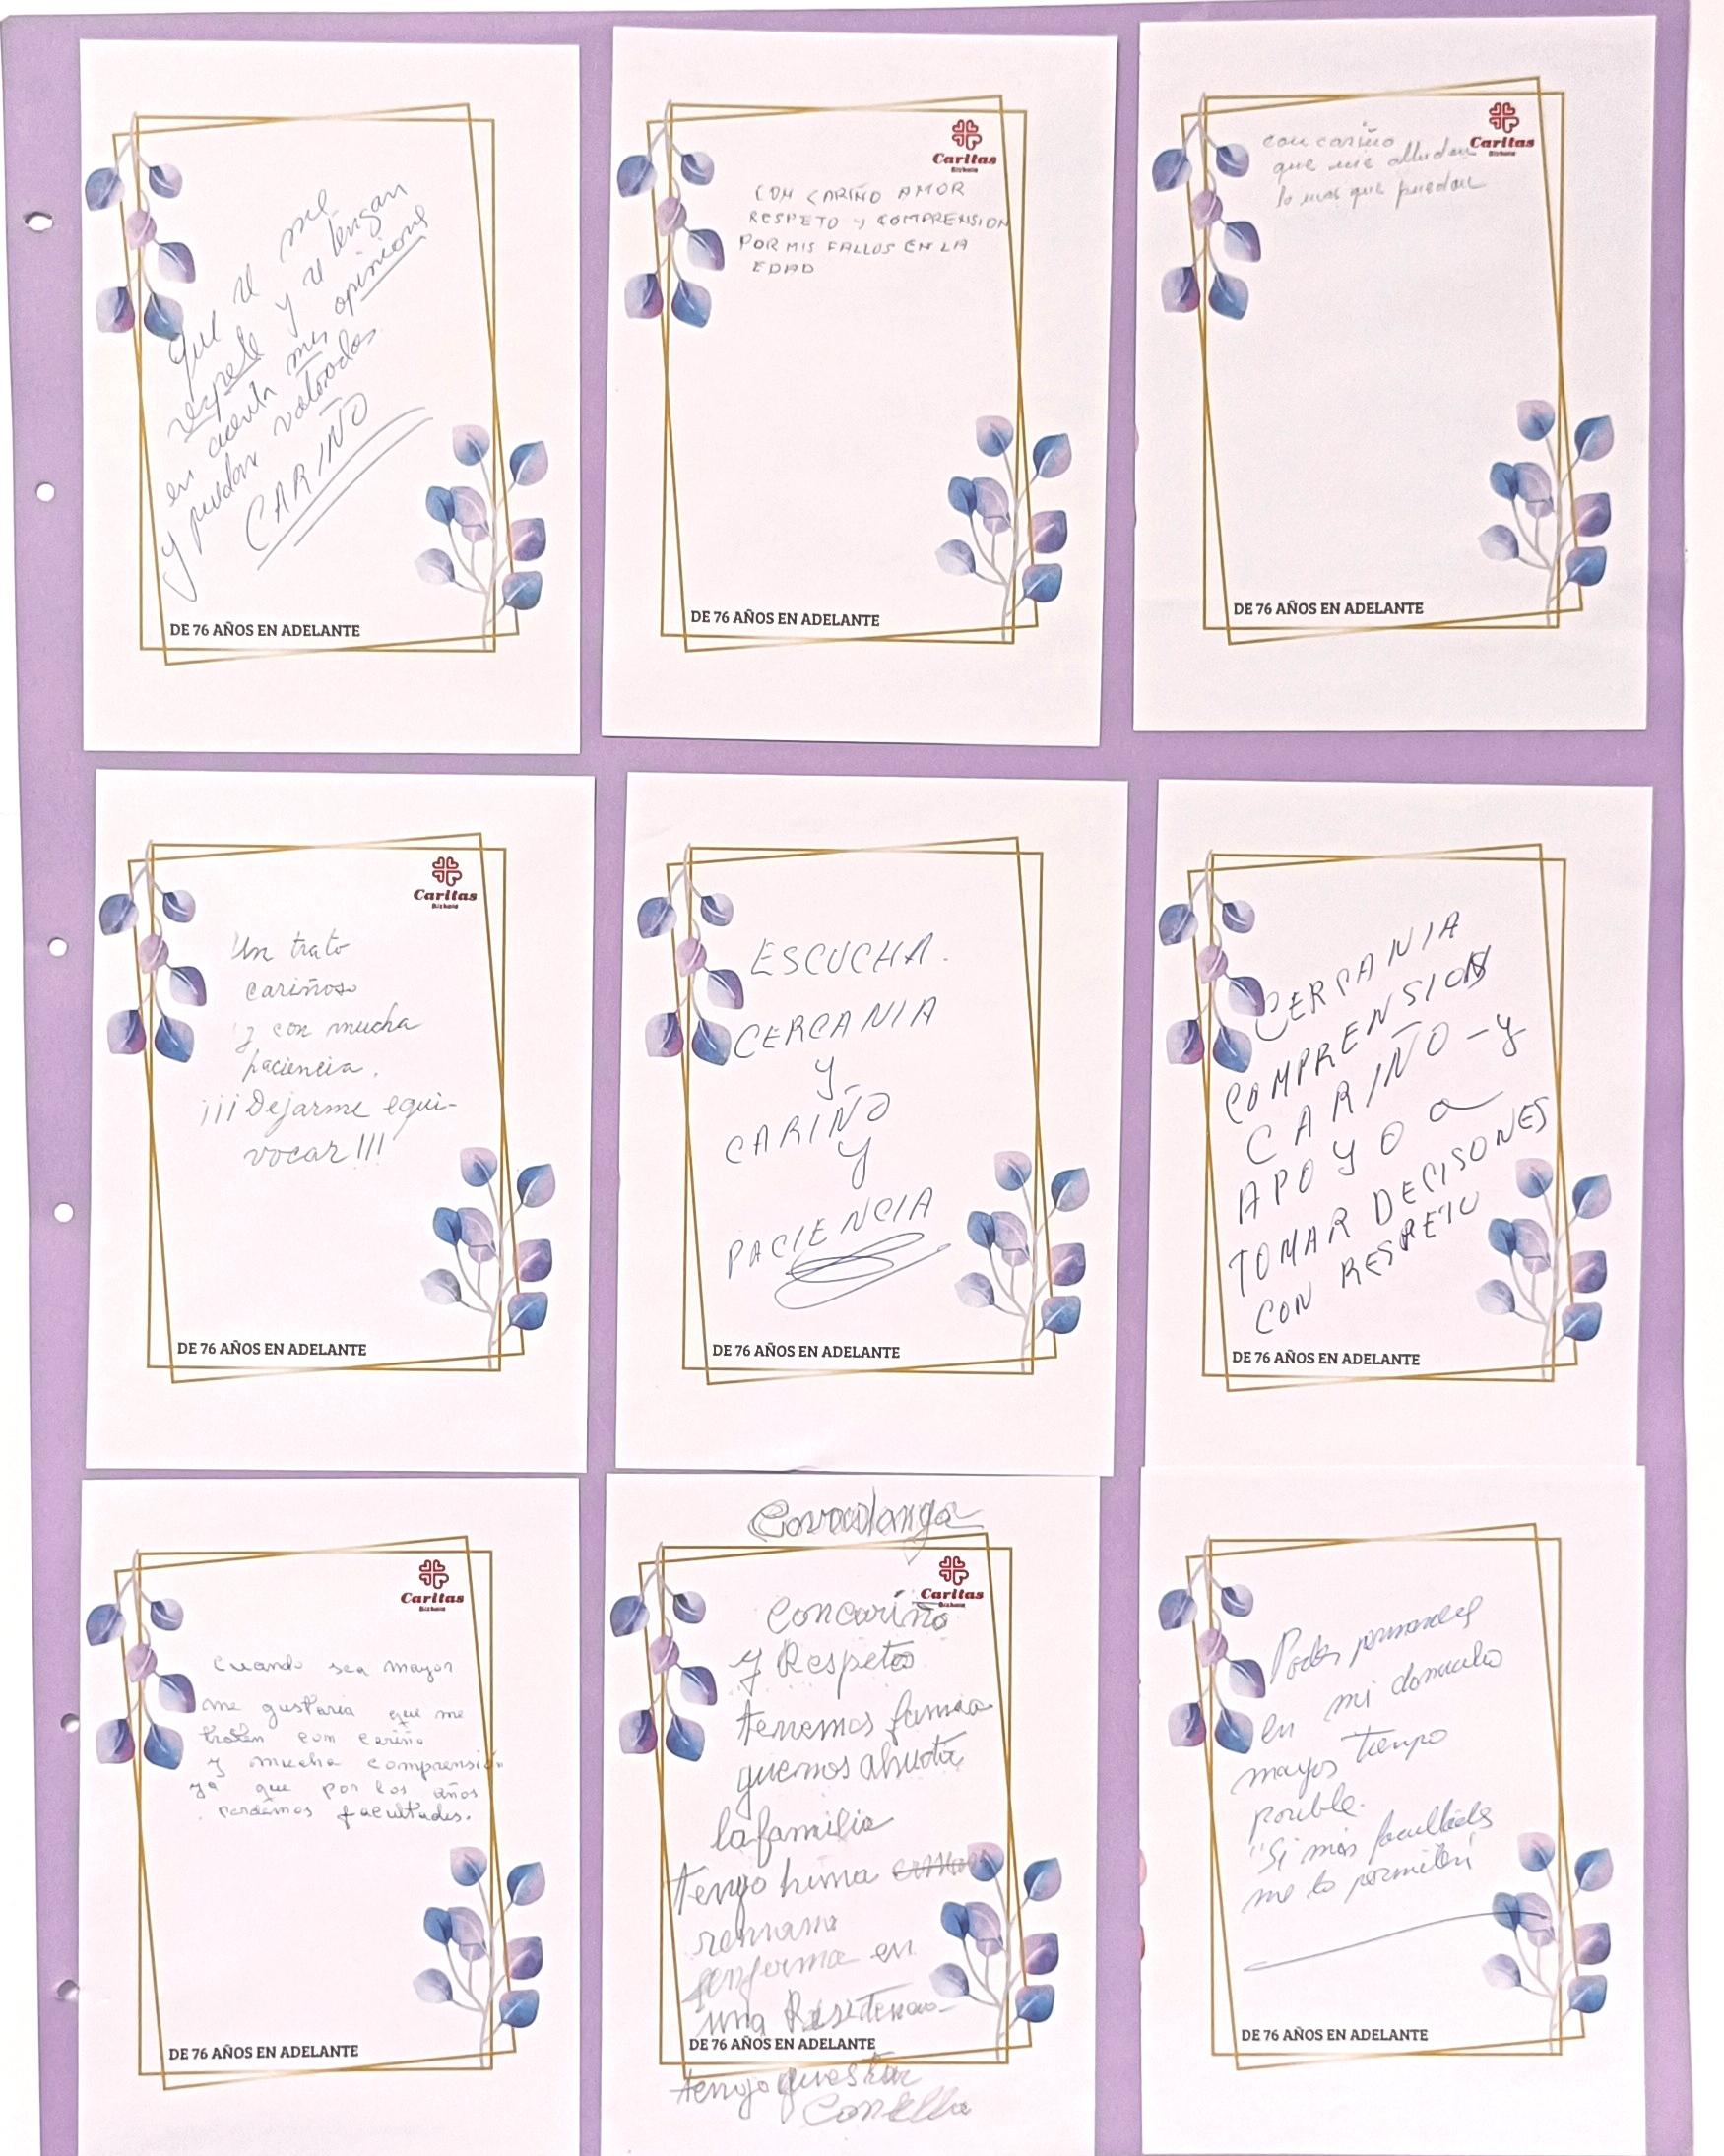 que se me
respete y se tengan
en cuenta mis opinions
y puedan valoradas
CARIÑO
DE 76 AÑOS EN ADELANTE
Caritas
Bizkaia
CON CARIÑO AMOR
RESPETO y COMPRENSION
POR MIS FALLOS EN LA
EDAD
DE 76 AÑOS EN ADELANTE
Caritas
Bizkaia
con cariño
que me alludan
lo mas que puedan
DE 76 AÑOS EN ADELANTE
Caritas
Bizkaia
Un trato
cariñoso
y con mucha
paciencia.
¡¡¡Dejarme equi-
vocar!!!
DE 76 AÑOS EN ADELANTE
ESCUCHA.
CERCANIA
y
CARIÑO
y
PACIENCIA
DE 76 AÑOS EN ADELANTE
CERCANIA
COMPRENSION
CARIÑO - y
APOYO a
TOMAR DECISONES
CON RESPETO
DE 76 AÑOS EN ADELANTE
Caritas
Bizkaia
Cuando sea mayor
me gustaria que me
traten con cariño
y mucha comprensión
ya que por los años
perdemos facultades.
DE 76 AÑOS EN ADELANTE
Caritas
Bizkaia
Concariño
y Respeto
tenemos
la familia
tengo huma
en
una
DE 76 AÑOS EN ADELANTE
tengo questar
Conella
Poder permanecer
en mi domicilio
mayor tiempo
posible.
"Si mis facultades
me lo permiten"
DE 76 AÑOS EN ADELANTE